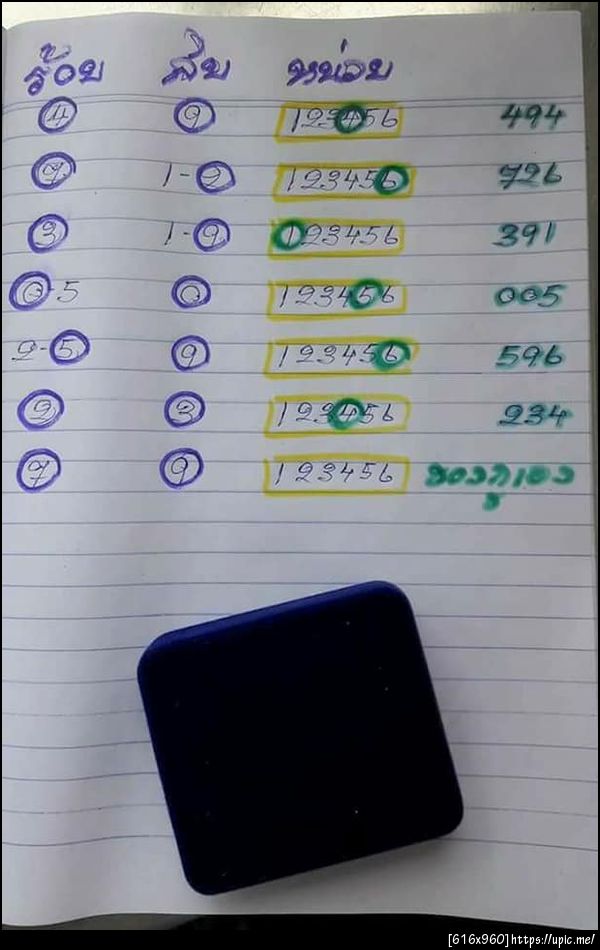 ร้อย สิบ หน่วย
4 9 123456 494
7 1-2 123456 726
3 1-9 123456 391
0-5 0 123456 005
2-5 9 123456 596
2 3 123456 234
7 9 123456 ของกูเอง
[616x960]https://upic.me/